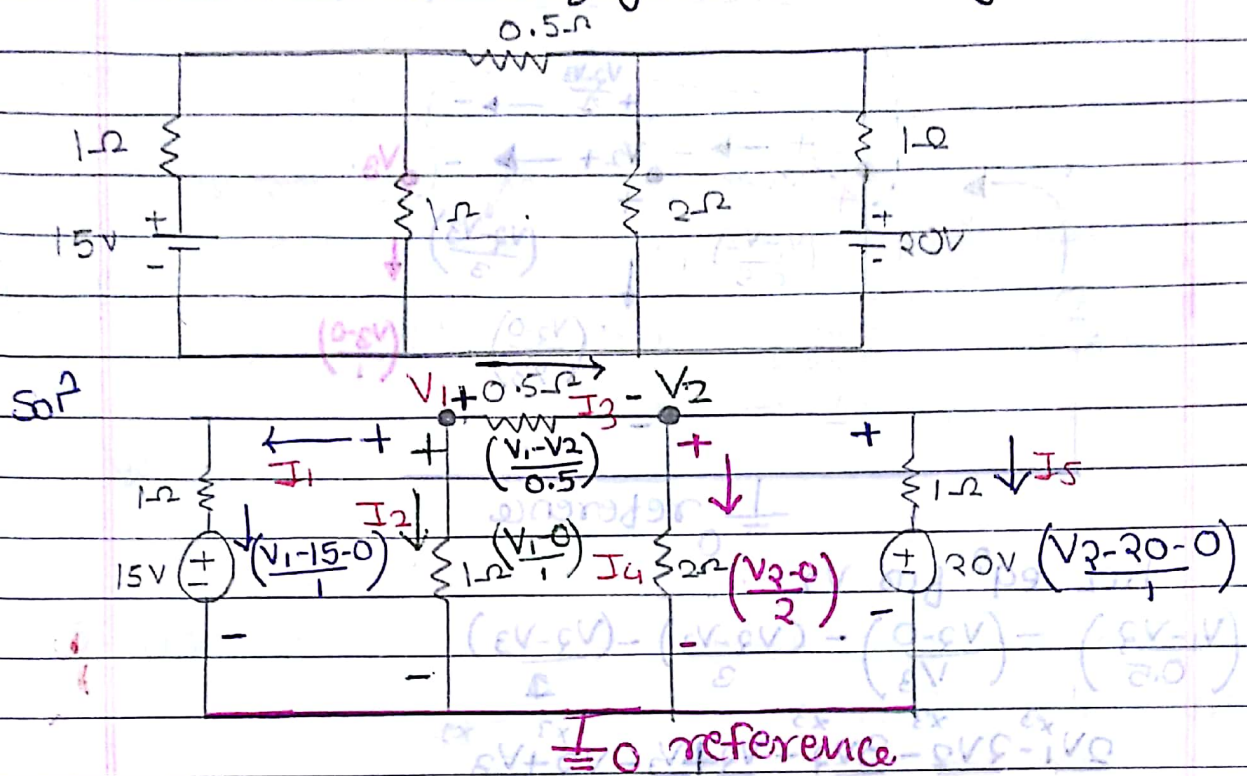 0.5Ω
1Ω
1Ω
+
15V
-
1Ω
2Ω
+
20V
-
Solⁿ
V1 + 0.5Ω I3 - V2
(V1-V2)/0.5
← +
+
+
+
I1
1Ω
I2
(V1-15-0)/1
15V
+
-
1Ω (V1-0)/1
I4
2Ω (V2-0)/2
I5
1Ω
+
-
20V (V2-20-0)/1
-
-
-
-
0 reference